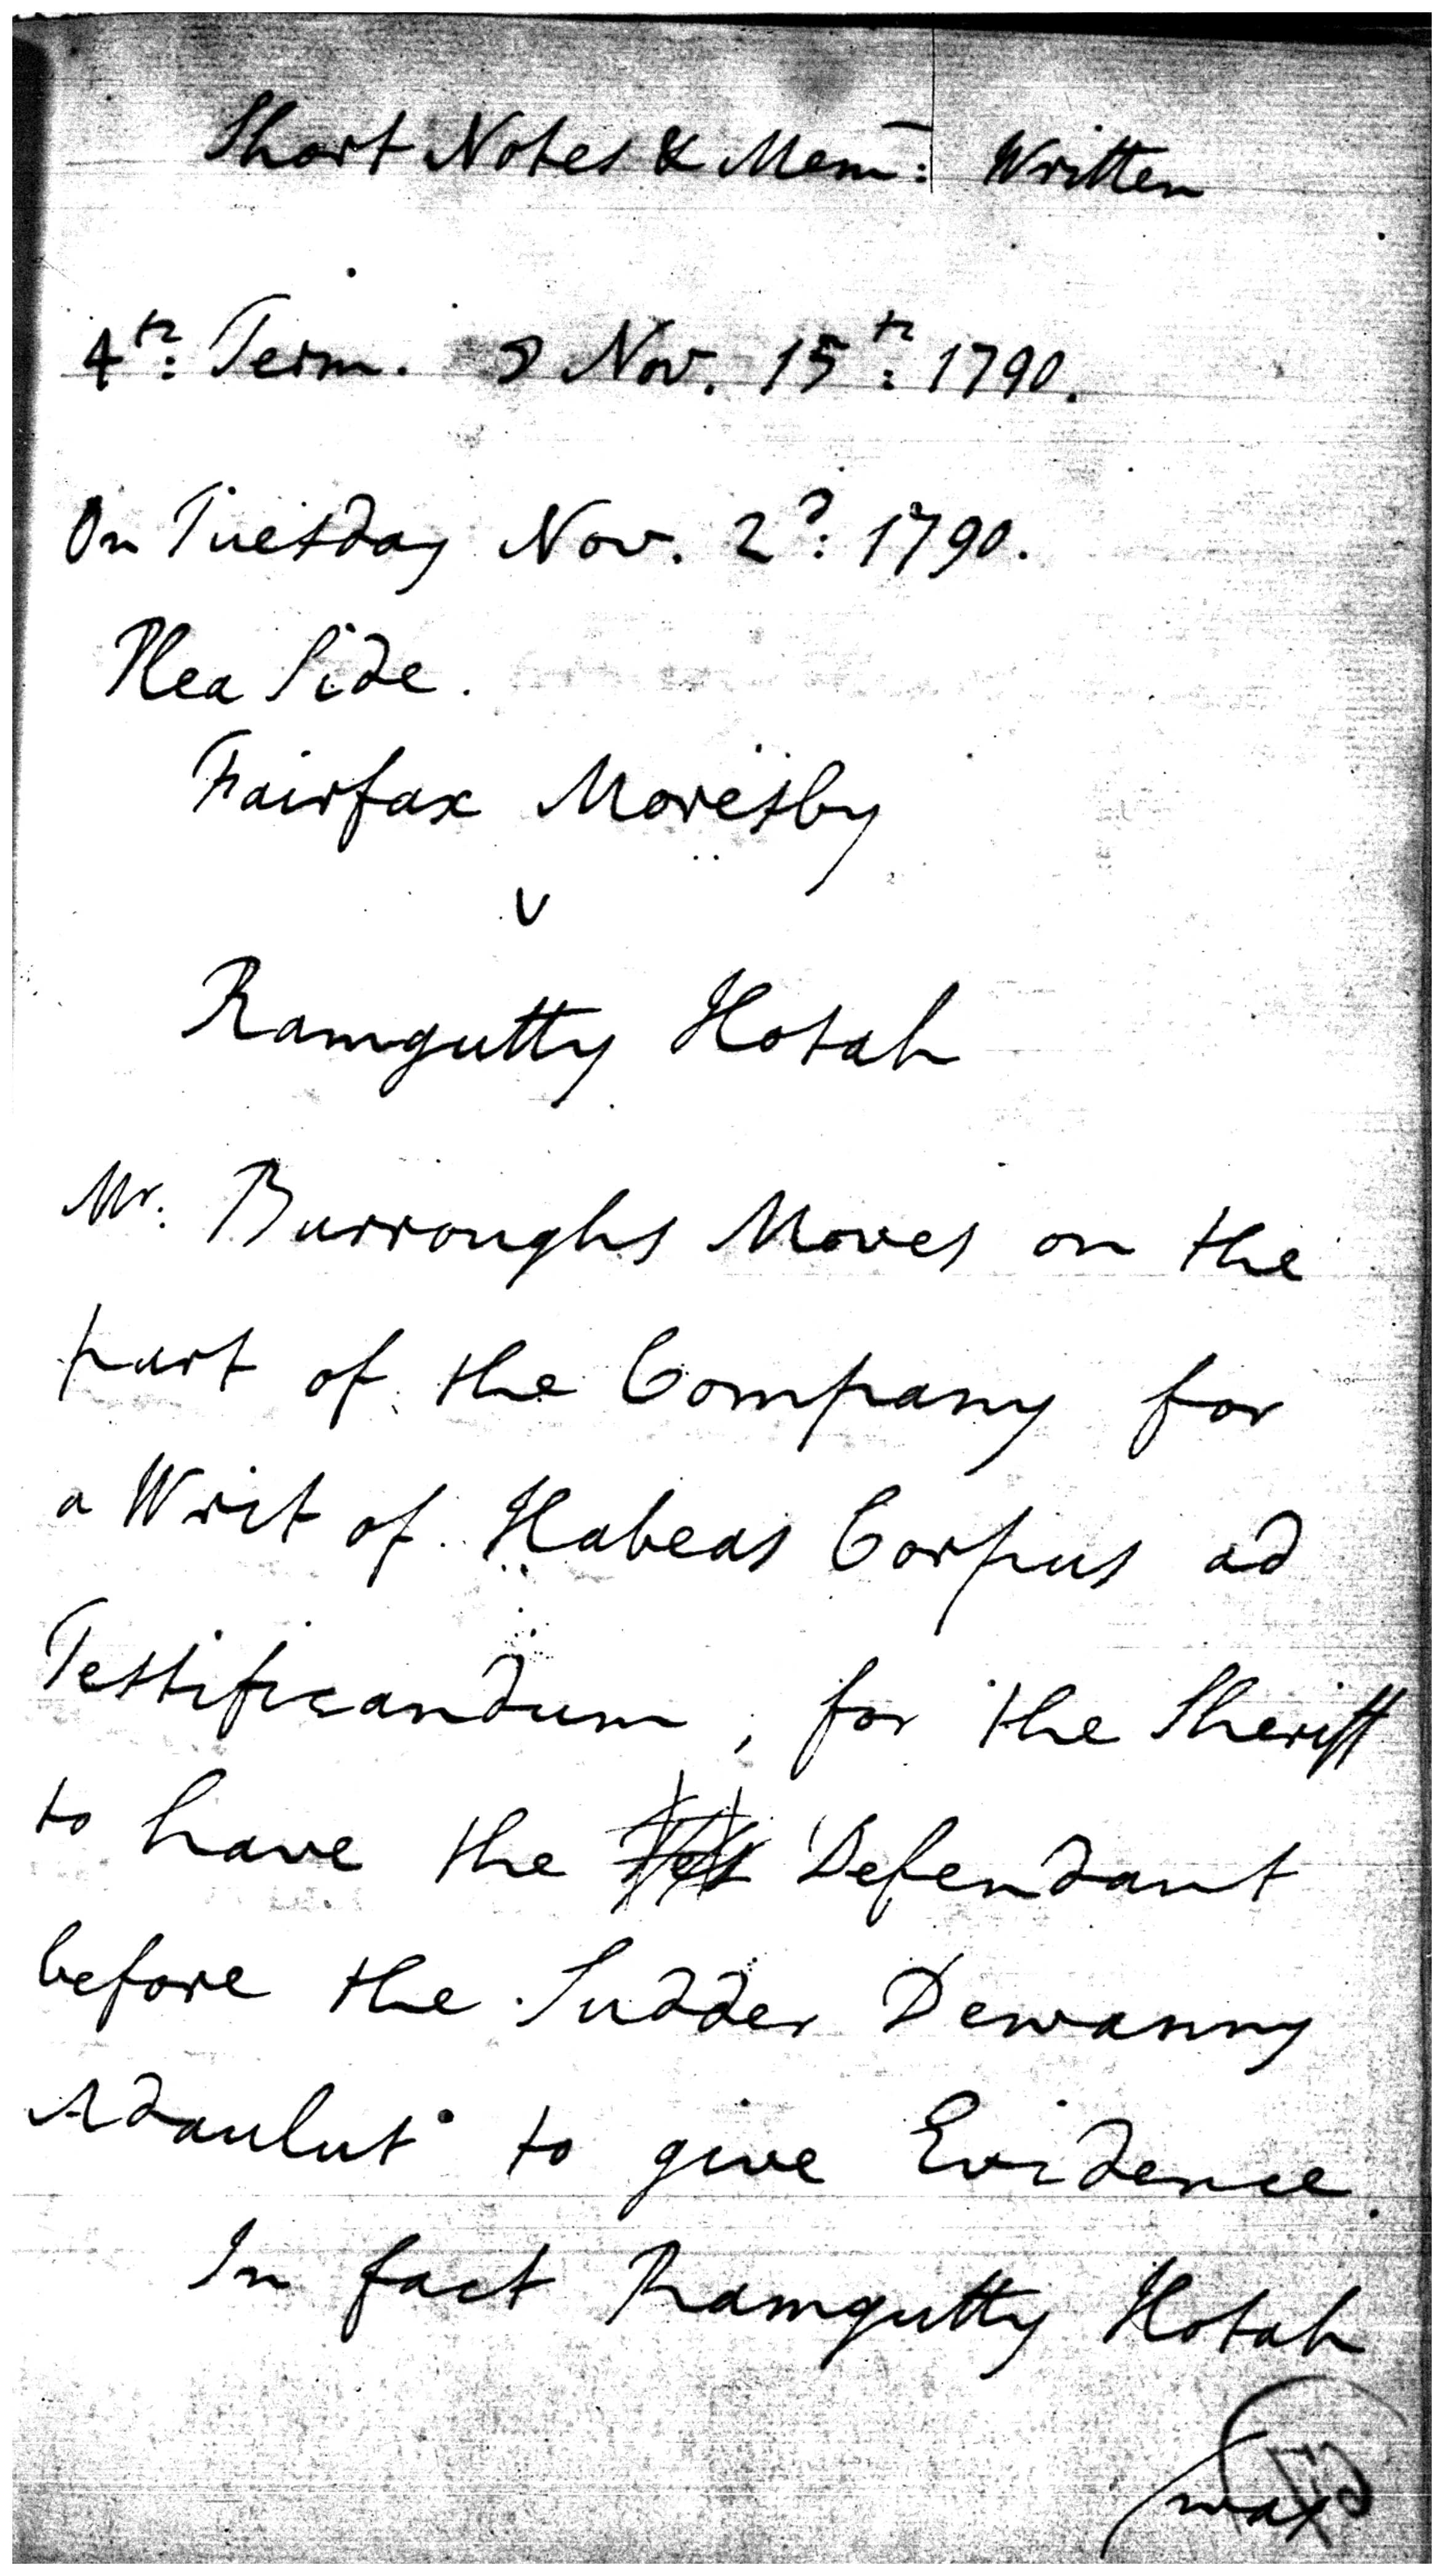 Short Notes & Mem: Written
4th: Term. Nov. 15th: 1790.
On Tuesday Nov. 2d: 1790.
Plea Side.
Fairfax Moresby
v
Ramgutty Hotah
Mr. Burroughs Moves on the
part of the Company for
a Writ of Habeas Corpus ad
Testificandum, for the Sheriff
to have the Defendant
before the Sudder Dewanny
Adaulut to give Evidence.
In fact Ramgutty Hotah
was